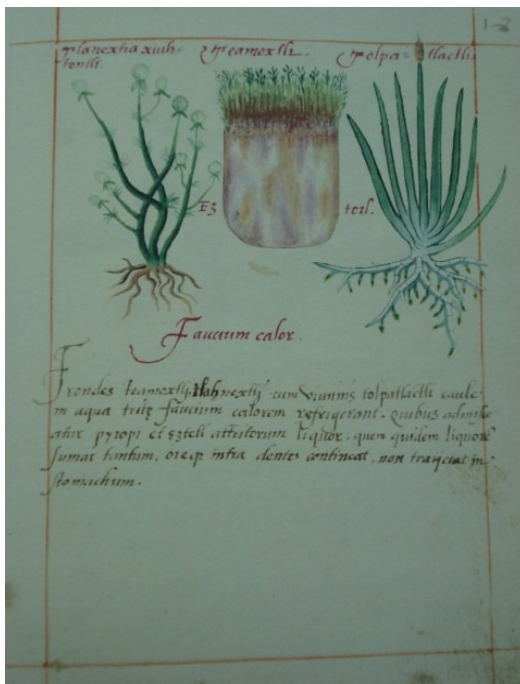 Tlanextia xiuh-
tontli.
Teamoxtli.
Tolpa-
tlactli
Ez
tetl.
Faucium calor.
Frondes teamoxtli, tlahnextij cum tolpatlactli caule
in aqua tritę faucium calorem refrigerant. Quibus admisce
atur pyropi et eztetl attritorum liquor. quem quidem liquorē
sumat tantum, oreqȝ intra dentes contineat, non traijciat in
stomachum.